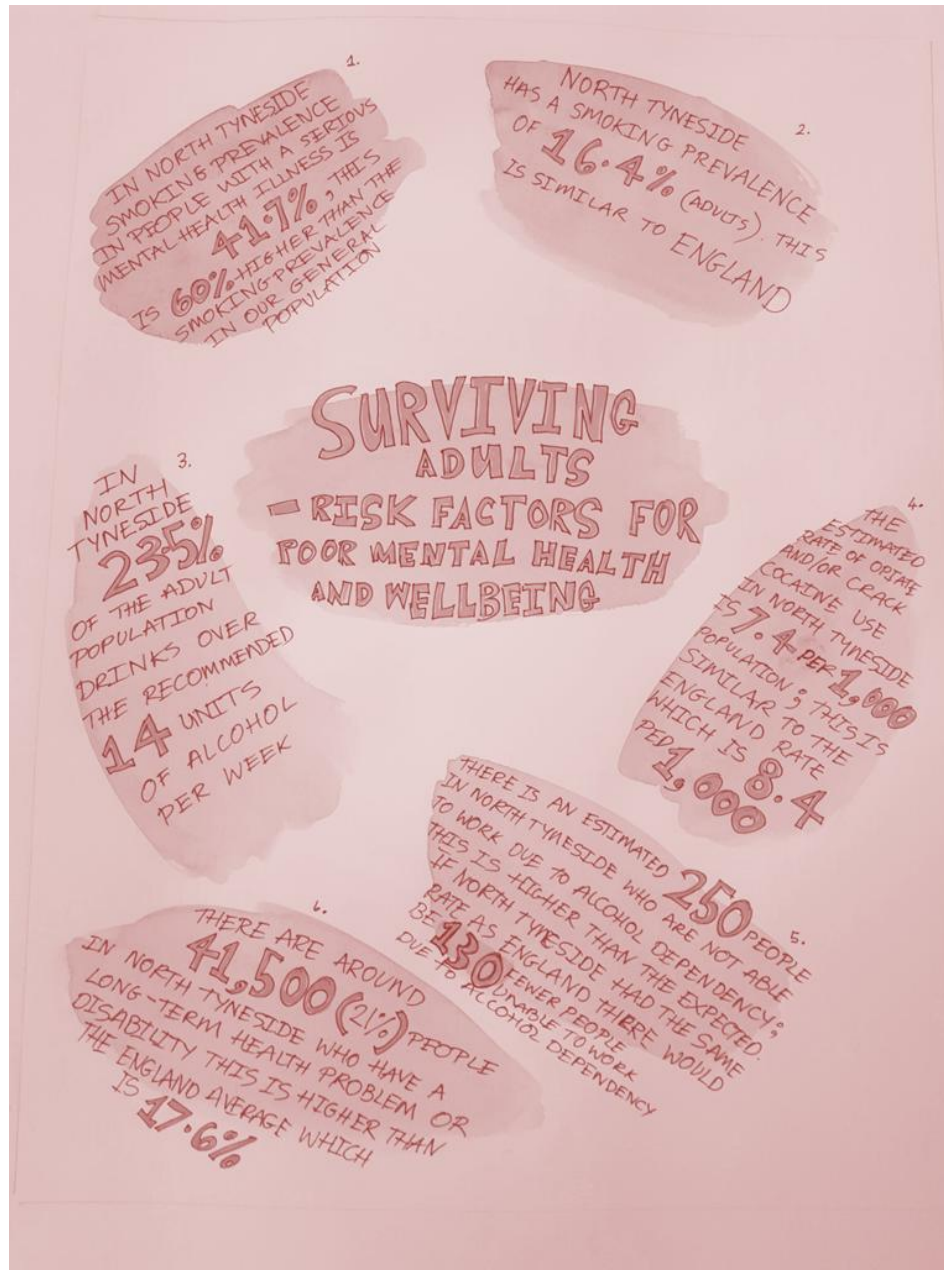 1.
IN NORTH TYNESIDE
SMOKING PREVALENCE
IN PEOPLE WITH A SERIOUS
MENTAL HEALTH ILLNESS IS
41.7%, THIS
IS 60% HIGHER THAN THE
SMOKING PREVALENCE
IN OUR GENERAL
POPULATION
2.
NORTH TYNESIDE
HAS A SMOKING PREVALENCE
OF 16.4% (ADULTS). THIS
IS SIMILAR TO ENGLAND
SURVIVING
ADULTS
- RISK FACTORS FOR
POOR MENTAL HEALTH
AND WELLBEING
3.
IN
NORTH
TYNESIDE
23.5%
OF THE ADULT
POPULATION
DRINKS OVER
THE RECOMMENDED
14 UNITS
OF ALCOHOL
PER WEEK
4.
THE
ESTIMATED
RATE OF OPIATE
AND/OR CRACK
COCAINE USE
IN NORTH TYNESIDE
IS 7.4 PER 1,000
POPULATION; THIS IS
SIMILAR TO THE
ENGLAND RATE
WHICH IS 8.4
PED 1,000
5.
THERE IS AN ESTIMATED 250 PEOPLE
IN NORTH TYNESIDE WHO ARE NOT ABLE
TO WORK DUE TO ALCOHOL DEPENDENCY;
THIS IS HIGHER THAN THE EXPECTED.
IF NORTH TYNESIDE HAD THE SAME
RATE AS ENGLAND THERE WOULD
BE 130 FEWER PEOPLE
UNABLE TO WORK
DUE TO ALCOHOL DEPENDENCY
6.
THERE ARE AROUND
41,500 (21%) PEOPLE
IN NORTH TYNESIDE WHO HAVE A
LONG-TERM HEALTH PROBLEM OR
DISABILITY THIS IS HIGHER THAN
THE ENGLAND AVERAGE WHICH
IS 17.6%